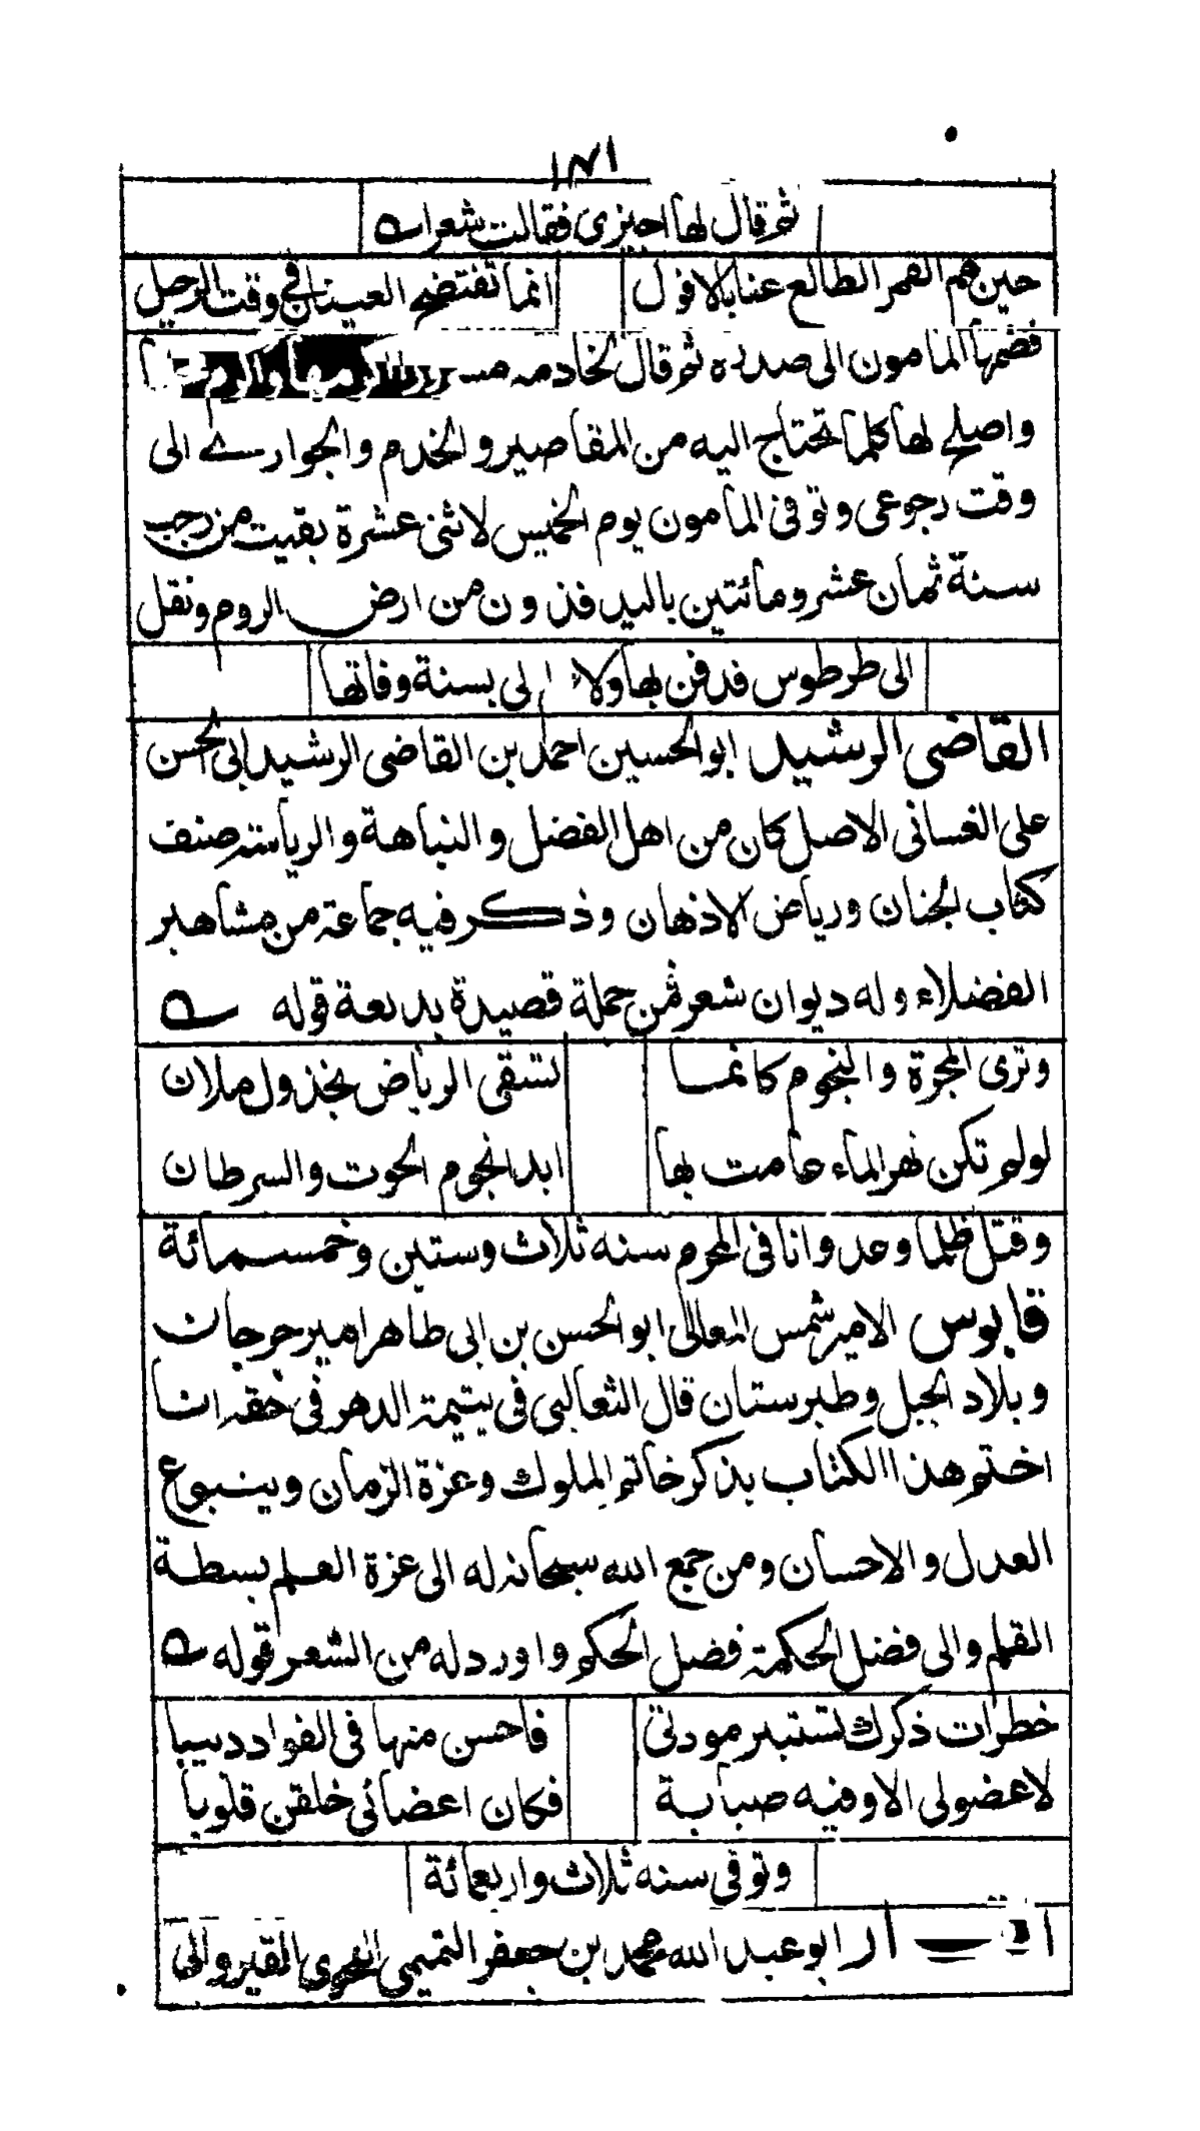 ١٧١
ثم قال لها اجيزي فقالت شعرا
حين هم القمر الطالع عنا بالافول انما تفتضح العينان في وقت الرحيل
فضمها المامون الى صدره ثم قال لخادمه
واصلح لها كلما تحتاج اليه من المقاصير والخدم والجواري الى
وقت رجوعي وتوفي المأمون يوم الخميس لاثنى عشرة بقيت من رجب
سنة ثمان عشر ومائتين بالبدفذون من ارض الروم ونقل
الى طرطوس فدفن بها بسنة وفاتها
القاضي الرشيد ابو الحسين احمد بن القاضي الرشيد ابى الحسن
على الغساني الاصل كان من اهل الفضل والنباهة والرياسة صنف
كتاب الجنان ورياض الاذهان وذكر فيه جماعة من مشاهير
الفضلاء وله ديوان شعر فمن جملة قصيدة بديعة قوله
وترى المجرة والنجوم كانما تسقى الرياض بجذول ملان
لو لم تكن نهر الماء عامت بها ابدا نجوم الحوت والسرطان
وقتل ظلما وعدوانا في المحرم سنه ثلاث وستين وخمسمائة
قابوس الامير شمس المعالى ابو الحسن بن ابى طاهر امير جرجان
وبلاد الجبل وطبرستان قال الثعالبي في يتيمة الدهر في حقه انا
اختم هذا الكتاب بذكر خاتم الملوك وعزة الزمان وينبوع
العدل والاحسان ومن جمع الله سبحانه له الى عزة العلم بسطة
القلم والى فضل الحكمة فضل الحكم واورد له من الشعر قوله
خطرات ذكرك تستبير مودتي فاحس منها في الفواد دبيبا
لا عضو لي الا وفيه صبابة فكان اعضائي خلقن قلوبا
وتوفي سنه ثلاث واربعمائة
ابو عبد الله محمد بن جعفر التميمي النحوي القيرواني